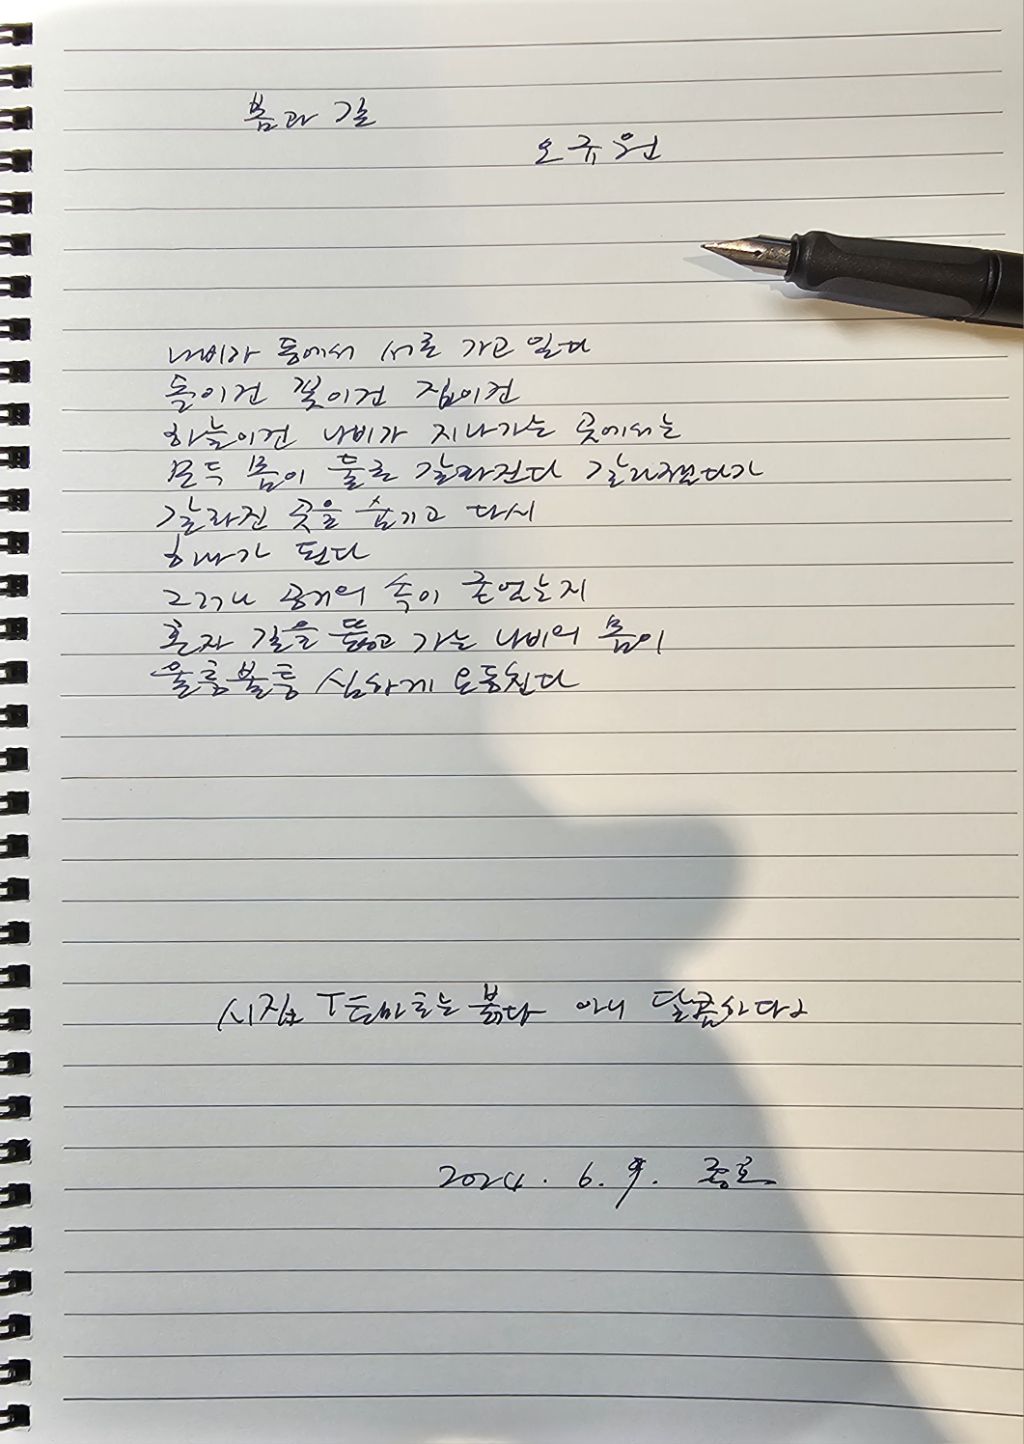 봄과 길
오규원
나비가 동에서 서로 가고 있다
돌이건 꽃이건 집이건
하늘이건 나비가 지나가는 곳에서는
모두 몸이 둘로 갈라진다 갈라졌다가
갈라진 곳을 숨기고 다시
하나가 된다
그러나 공기의 속이 굳었는지
혼자 길을 뚫고 가는 나비의 몸이
울퉁불퉁 심하게 요동친다
시집 「토마토는 붉다 아니 달콤하다」
2024. 6. 9.